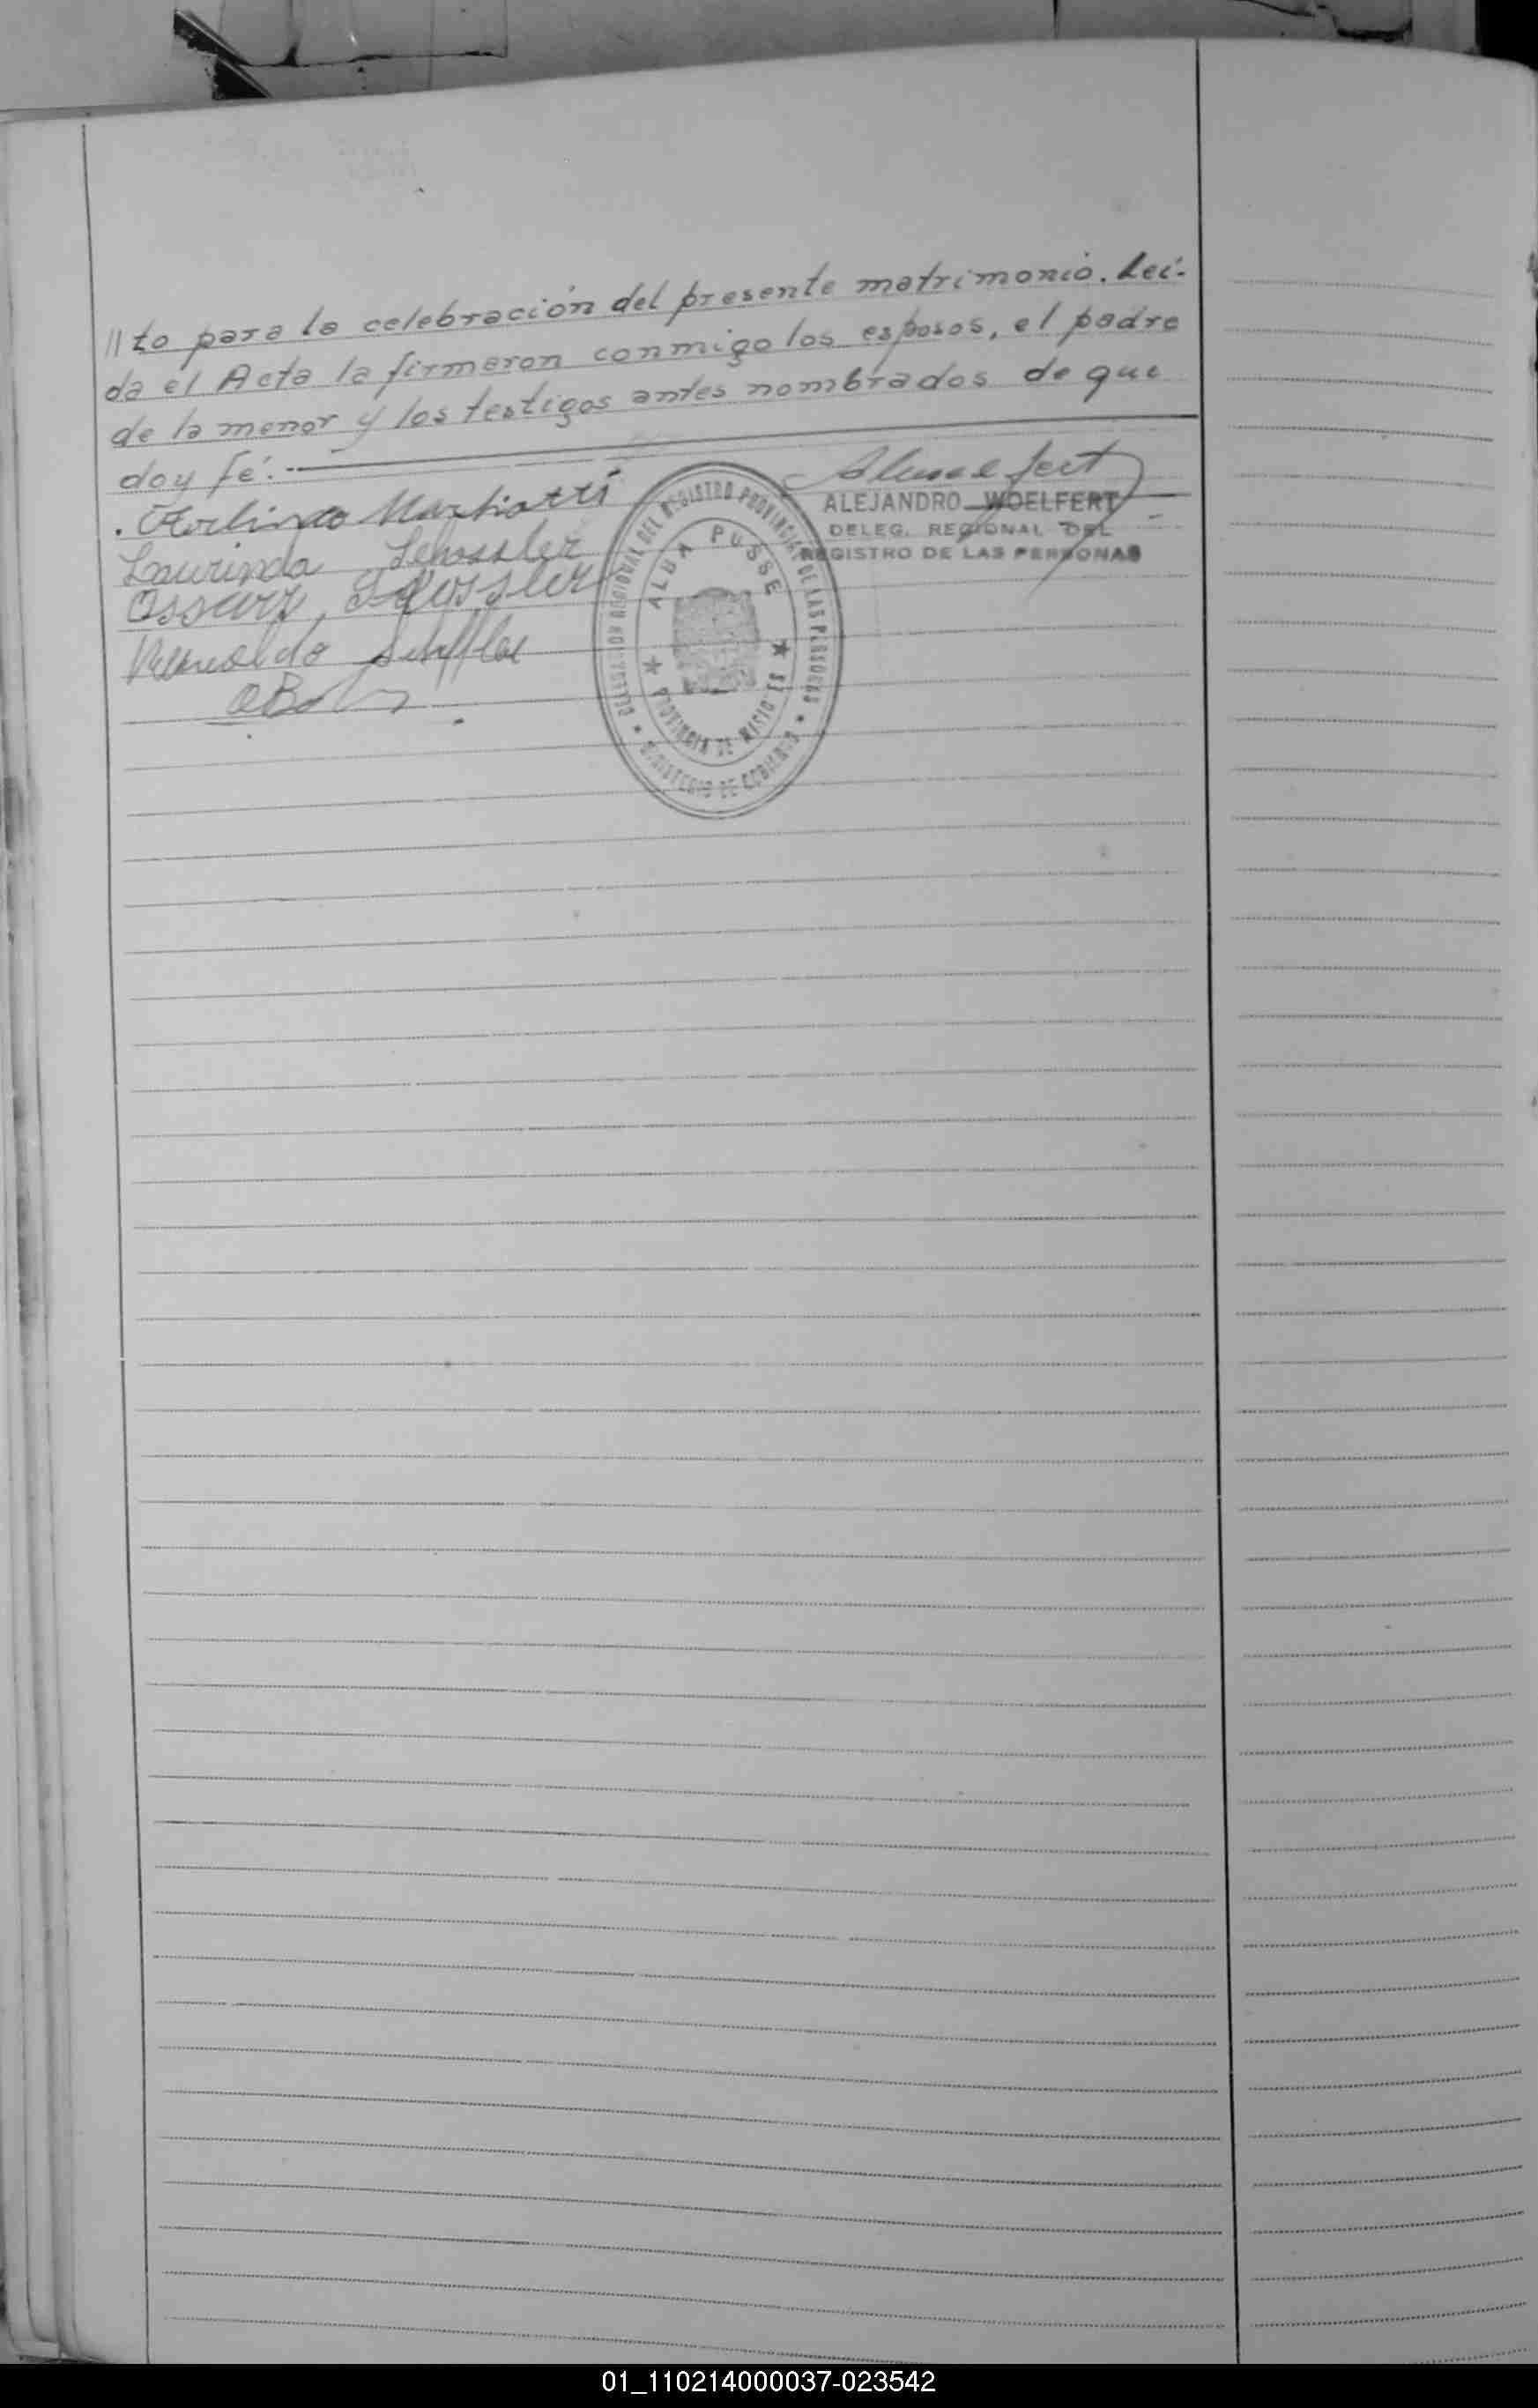 //to para la celebración del presente matrimonio. Leí-
da el Acta la firmaron conmigo los esposos, el padre
de la menor y los testigos antes nombrados de que
doy fé.-
ALEJANDRO WOELFERT
DELEG. REGIONAL DEL
REGISTRO DE LAS PERSONAS
Laurinda Schossler
DELEGACION REGIONAL DEL REGISTRO PROVINCIAL DE LAS PERSONAS
ALBA PUSSE
PROVINCIA DE MISIONES
MINISTERIO DE GOBIERNO
01_110214000037-023542